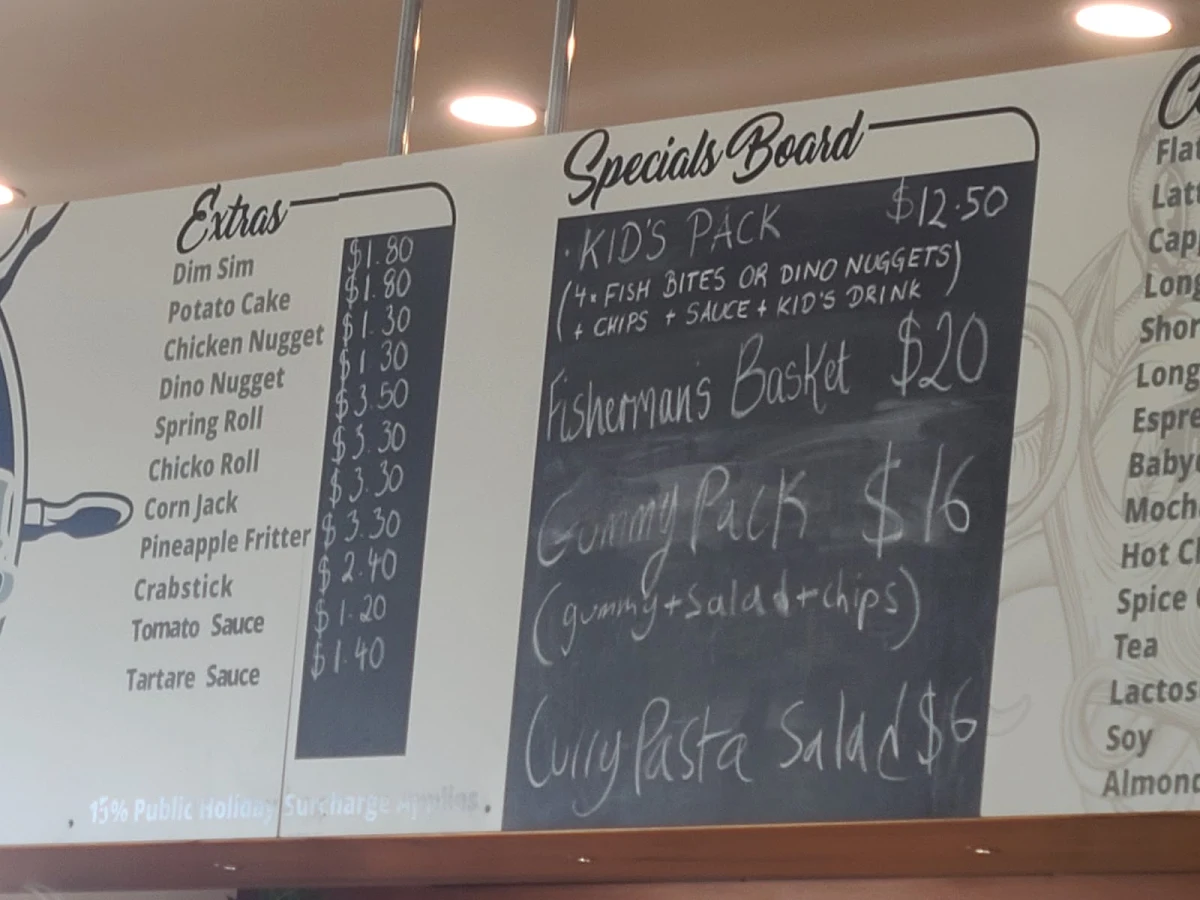 Extras
Dim Sim $1.80
Potato Cake $1.80
Chicken Nugget $1.30
Dino Nugget $1.30
Spring Roll $3.50
Chicko Roll $3.30
Corn Jack $3.30
Pineapple Fritter $3.30
Crabstick $2.40
Tomato Sauce $1.20
Tartare Sauce $1.40
15% Public Holiday Surcharge Applies.
Specials Board
· KID'S PACK $12.50
(4x FISH BITES OR DINO NUGGETS)
+ CHIPS + SAUCE + KID'S DRINK
Fisherman's Basket $20
Gummy Pack $16
(gummy+salad+chips)
Curry Pasta Salad $6
Tea
Soy